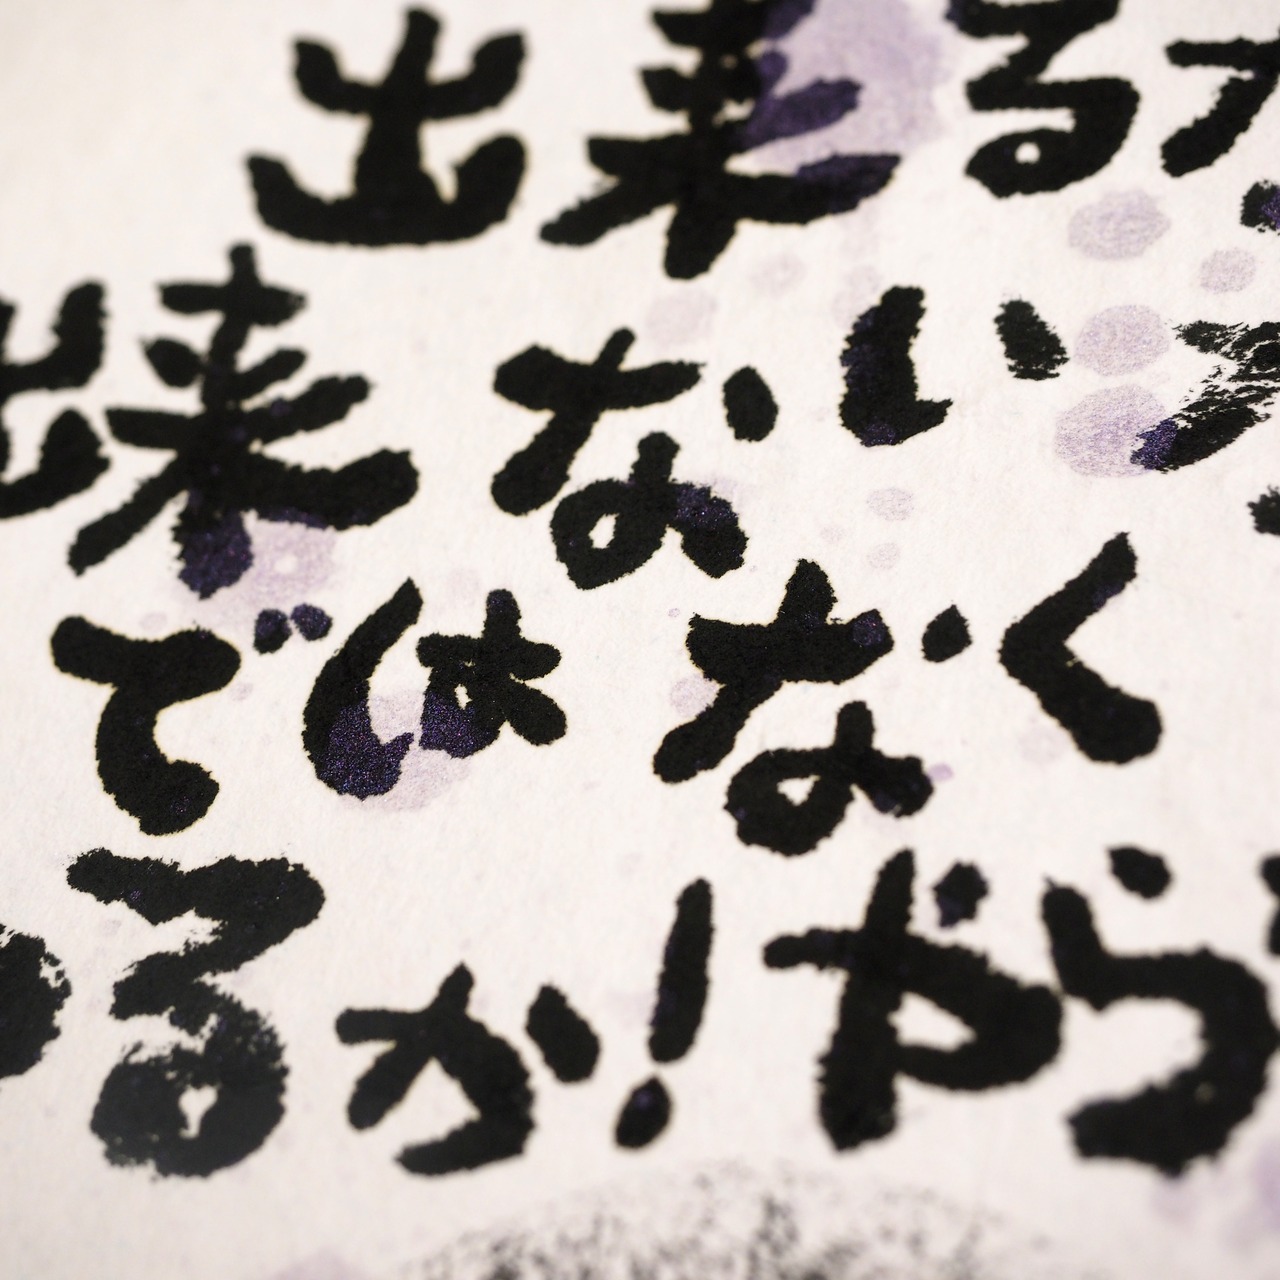 出来る
出来ない
ではなく
るか!やら